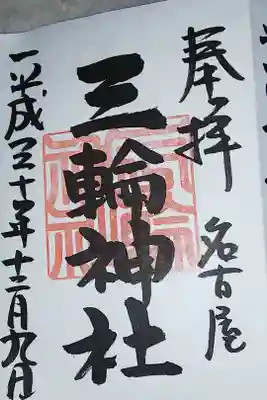 奉拝 名古屋
三輪神社
平成三十年十二月九日